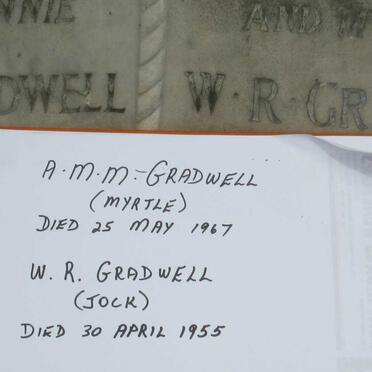 NNIE
AND M
DWELL
W·R·GR
A·M·M-GRADWELL
(MYRTLE)
DIED 25 MAY 1967
W. R. GRADWELL
(JOCK)
DIED 30 APRIL 1955